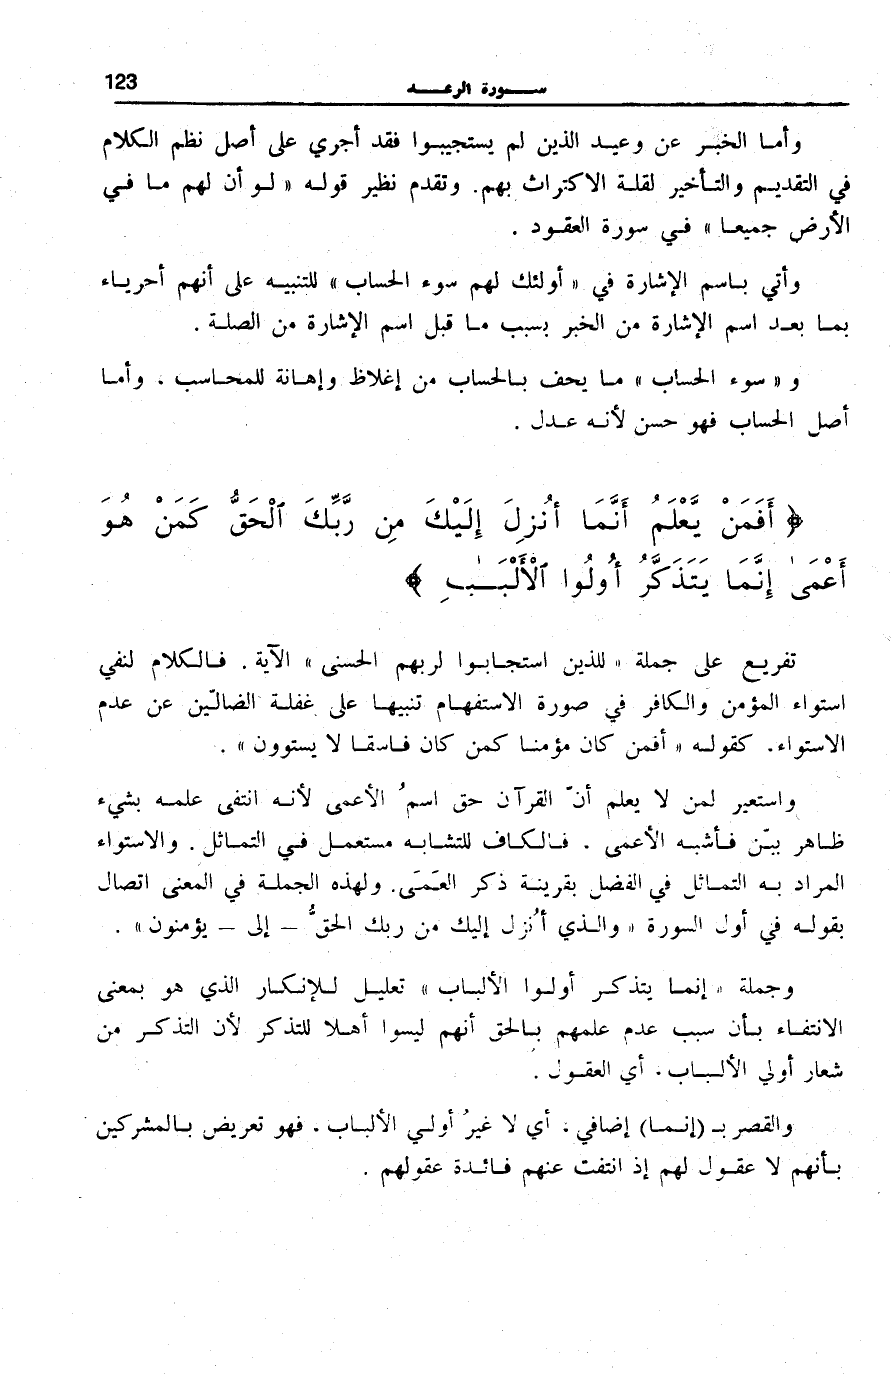 123
ســـورة الرعـــد
وأمـا الخبـر عن وعيـد الذين لم يستجيبـوا فقد أجري على أصل نظم الكلام
في التقديـم والتـأخير لقلـة الاكتراث بهم. وتقدم نظير قولـه « لـو أن لهم مـا فـي
الأرض جميعـا » فـي سورة العقـود .
وأتي بـاسم الإشارة في « أولئك لهم سوء الحساب » للتنبيـه على أنهم أحريـاء
بمـا بعـد اسم الإشارة من الخبر بسبب مـا قبل اسم الإشارة من الصلـة .
و « سوء الحساب » مـا يحف بـالحساب من إغلاظ وإهـانة للمحـاسب ، وأمـا
أصل الحساب فهو حسن لأنـه عـدل .
﴿ أَفَمَنْ يَّعْلَمُ أَنَّمَا أُنزِلَ إِلَيْكَ مِن رَّبِّكَ ٱلْحَقُّ كَمَنْ هُوَ
أَعْمَىٰ إِنَّمَا يَتَذَكَّرُ أُولُوا ٱلْأَلْبَـٰبِ ﴾
تفريـع على جملة « للذين استجـابـوا لربهم الحسنى » الآية . فـالكلام لنفي
استواء المؤمن والكافر في صورة الاستفهـام تنبيهـا على غفلـة الضالّين عن عدم
الاستواء. كقولـه « أفمن كان مؤمنـا كمن كان فـاسقـا لا يستوون » .
واستعير لمن لا يعلم أنّ القرآن حق اسمُ الأعمى لأنـه انتفى علمـه بشيء
ظـاهر بيّـن فـأشبـه الأعمى . فـالكـاف للتشـابـه مستعمـل فـي التمـاثل . والاستواء
المراد بـه التمـاثل في الفضل بقرينـة ذكر العَمَى. ولهذه الجملـة في المعنى اتصال
بقولـه في أول السورة « والـذي أُنزل إليك من ربك الحقُّ – إلى – يؤمنون » .
وجملة « إنمـا يتذكـر أولـوا الألبـاب » تعليـل لـلإنكـار الذي هو بمعنى
الانتفـاء بـأن سبب عدم علمهم بـالحق أنهم ليسوا أهـلا للتذكر لأن التذكـر من
شعار أولي الألبـاب ، أي العقـول .
والقصر بـ (إنـمـا) إضافي ، أي لا غيرُ أولـي الألبـاب . فهو تعريض بـالمشركين
بـأنهم لا عقـول لهم إذ انتفت عنهم فـائـدة عقولهم .